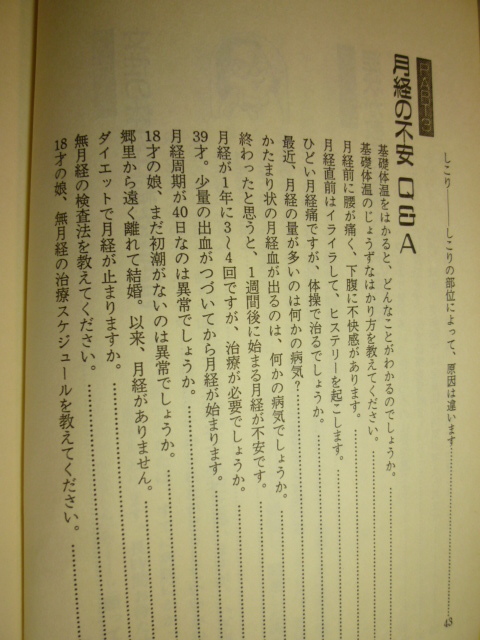 しこり——しこりの部位によって、原因は違います 43
PART3
月経の不安 Q&A
基礎体温をはかると、どんなことがわかるのでしょうか。
基礎体温のじょうずなはかり方を教えてください。
月経前に腰が痛く、下腹に不快感があります。
月経直前はイライラして、ヒステリーを起こします。
ひどい月経痛ですが、体操で治るでしょうか。
最近、月経の量が多いのは何かの病気?
かたまり状の月経血が出るのは、何かの病気でしょうか。
終わったと思うと、1週間後に始まる月経が不安です。
月経が1年に3〜4回ですが、治療が必要でしょうか。
39才。少量の出血がつづいてから月経が始まります。
月経周期が40日なのは異常でしょうか。
18才の娘、まだ初潮がないのは異常でしょうか。
郷里から遠く離れて結婚。以来、月経がありません。
ダイエットで月経が止まりますか。
無月経の検査法を教えてください。
18才の娘、無月経の治療スケジュールを教えてください。